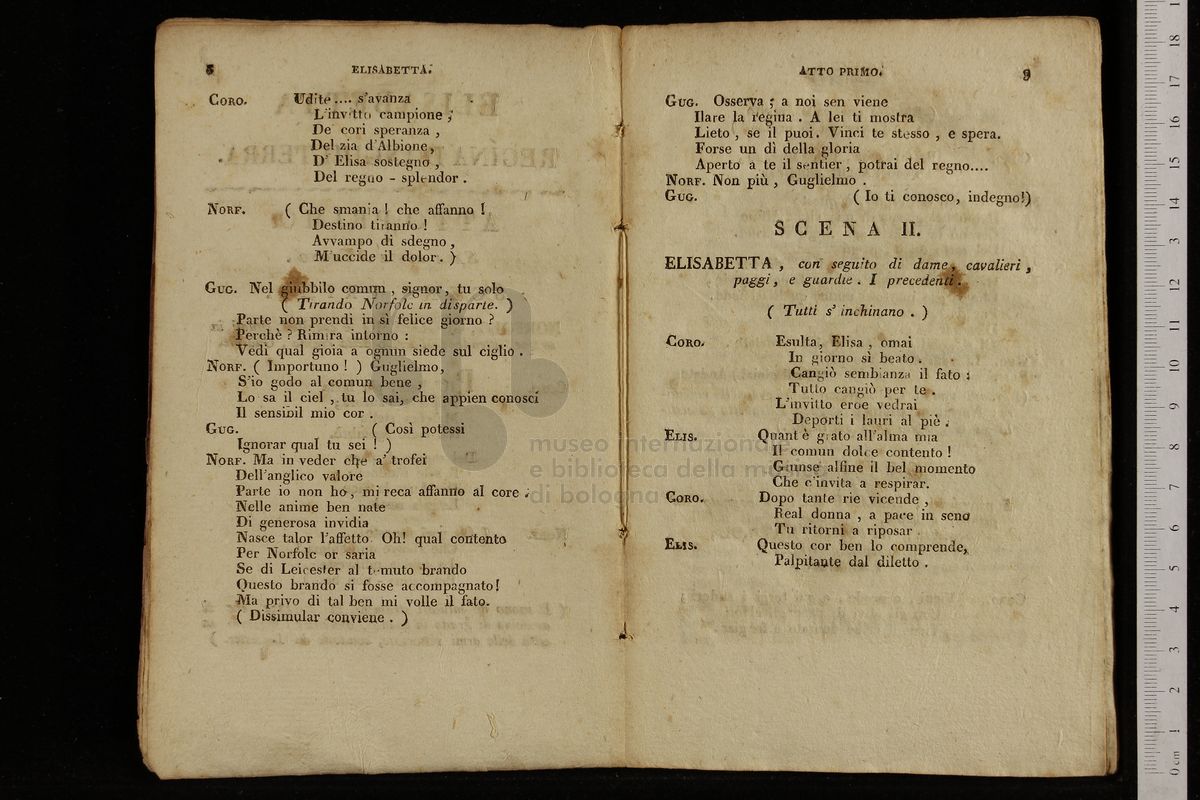 8
ELISABETTA.
CORO. Udite .... s'avanza
L'invitto campione ;
De' cori speranza ,
Del zia d'Albione,
D' Elisa sostegno ,
Del regno - splendor .
NORF. ( Che smania ! che affanno !
Destino tiranno !
Avvampo di sdegno ,
M'uccide il dolor . )
GUG. Nel giubbilo comun , signor, tu solo
( Tirando Norfolc in disparte. )
Parte non prendi in sì felice giorno ?
Perchè ? Rimira intorno :
Vedi qual gioia a ognun siede sul ciglio .
NORF. ( Importuno ! ) Guglielmo,
S'io godo al comun bene ,
Lo sa il ciel , tu lo sai, che appien conosci
Il sensibil mio cor .
GUG. ( Così potessi
Ignorar qual tu sei ! )
NORF. Ma in veder che a' trofei
Dell'anglico valore
Parte io non ho , mi reca affanno al core :
Nelle anime ben nate
Di generosa invidia
Nasce talor l'affetto Oh! qual contento
Per Norfolc or saria
Se di Leicester al temuto brando
Questo brando si fosse accompagnato !
Ma privo di tal ben mi volle il fato.
( Dissimular conviene . )
ATTO PRIMO.
9
GUG. Osserva ; a noi sen viene
Ilare la regina . A lei ti mostra
Lieto , se il puoi. Vinci te stesso , e spera.
Forse un dì della gloria
Aperto a te il sentier , potrai del regno....
NORF. Non più , Guglielmo .
GUG. ( Io ti conosco, indegno!)
SCENA II.
ELISABETTA , con seguito di dame , cavalieri ,
paggi , e guardie . I precedenti .
( Tutti s' inchinano . )
CORO. Esulta, Elisa , omai
In giorno sì beato .
Cangiò sembianza il fato :
Tutto cangiò per te .
L'invitto eroe vedrai
Deporti i lauri al piè .
ELIS. Quant'è grato all'alma mia
Il comun dolce contento !
Giunse alfine il bel momento
Che c'invita a respirar.
CORO. Dopo tante rie vicende ,
Real donna , a pace in seno
Tu ritorni a riposar .
ELIS. Questo cor ben lo comprende,
Palpitante dal diletto .
museo internazionale
e biblioteca della musica
di bologna
0 cm 1 2 3 4 5 6 7 8 9 10 11 12 13 14 15 16 17 18